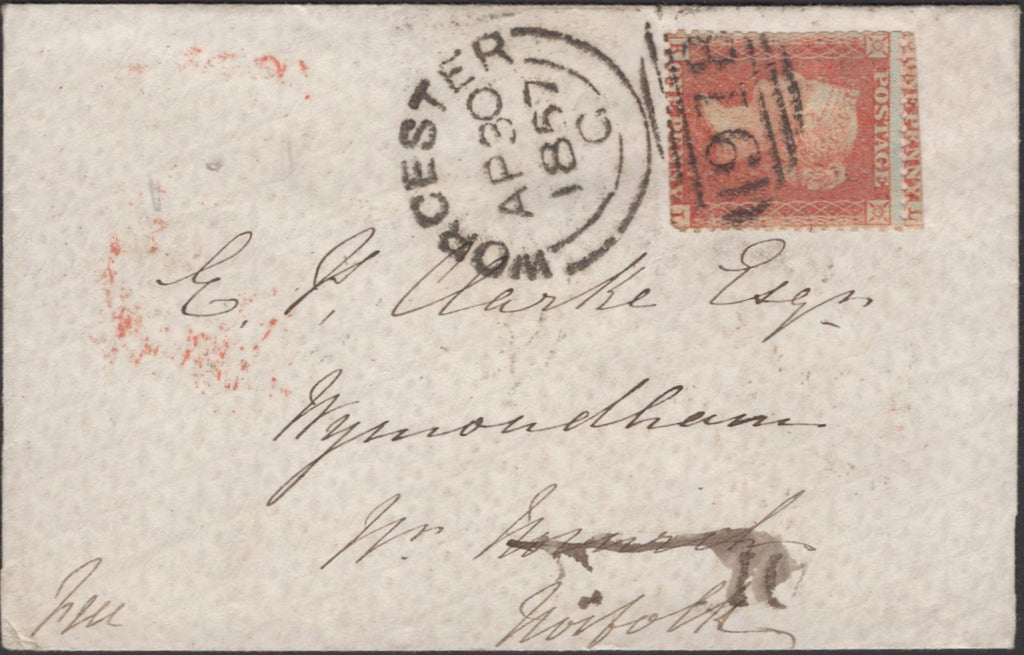 WORCESTER
AP 30
1857
C
918
POSTAGE
ONE PENNY
E. J. Clarke Esqr
Wymondham
Nr Norwich
Norfolk